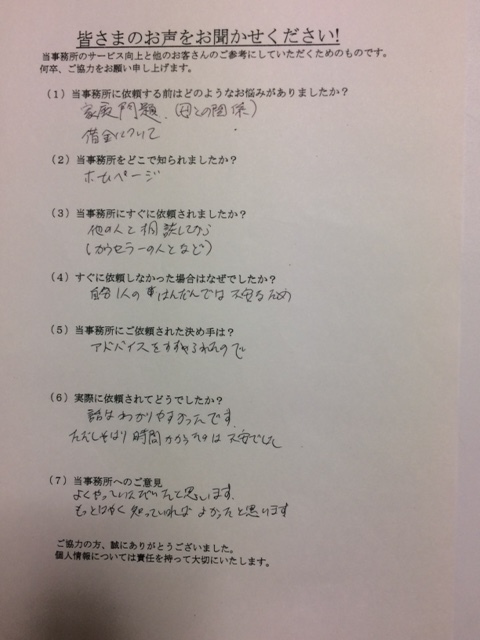 皆さまのお声をお聞かせください!
当事務所のサービス向上と他のお客さんのご参考にしていただくためのものです。
何卒、ご協力をお願い申し上げます。
(1)当事務所に依頼する前はどのようなお悩みがありましたか?
家庭問題、(母との関係)
借金について
(2)当事務所をどこで知られましたか?
ホームページ
(3)当事務所にすぐに依頼されましたか?
他の人と相談してから
(カウセラーの人となど)
(4)すぐに依頼しなかった場合はなぜでしたか?
自分1人の事はんだんでは不安なため
(5)当事務所にご依頼された決め手は?
アドバイスをすすめられたので
(6)実際に依頼されてどうでしたか?
話はわかりやすかったです。
ただし 時間かかるのは不安でした
(7)当事務所へのご意見
よくやっていただいたと思います。
もっとはやく知っていれば よかったと思います
ご協力の方、誠にありがとうございました。
個人情報については責任を持って大切にいたします。